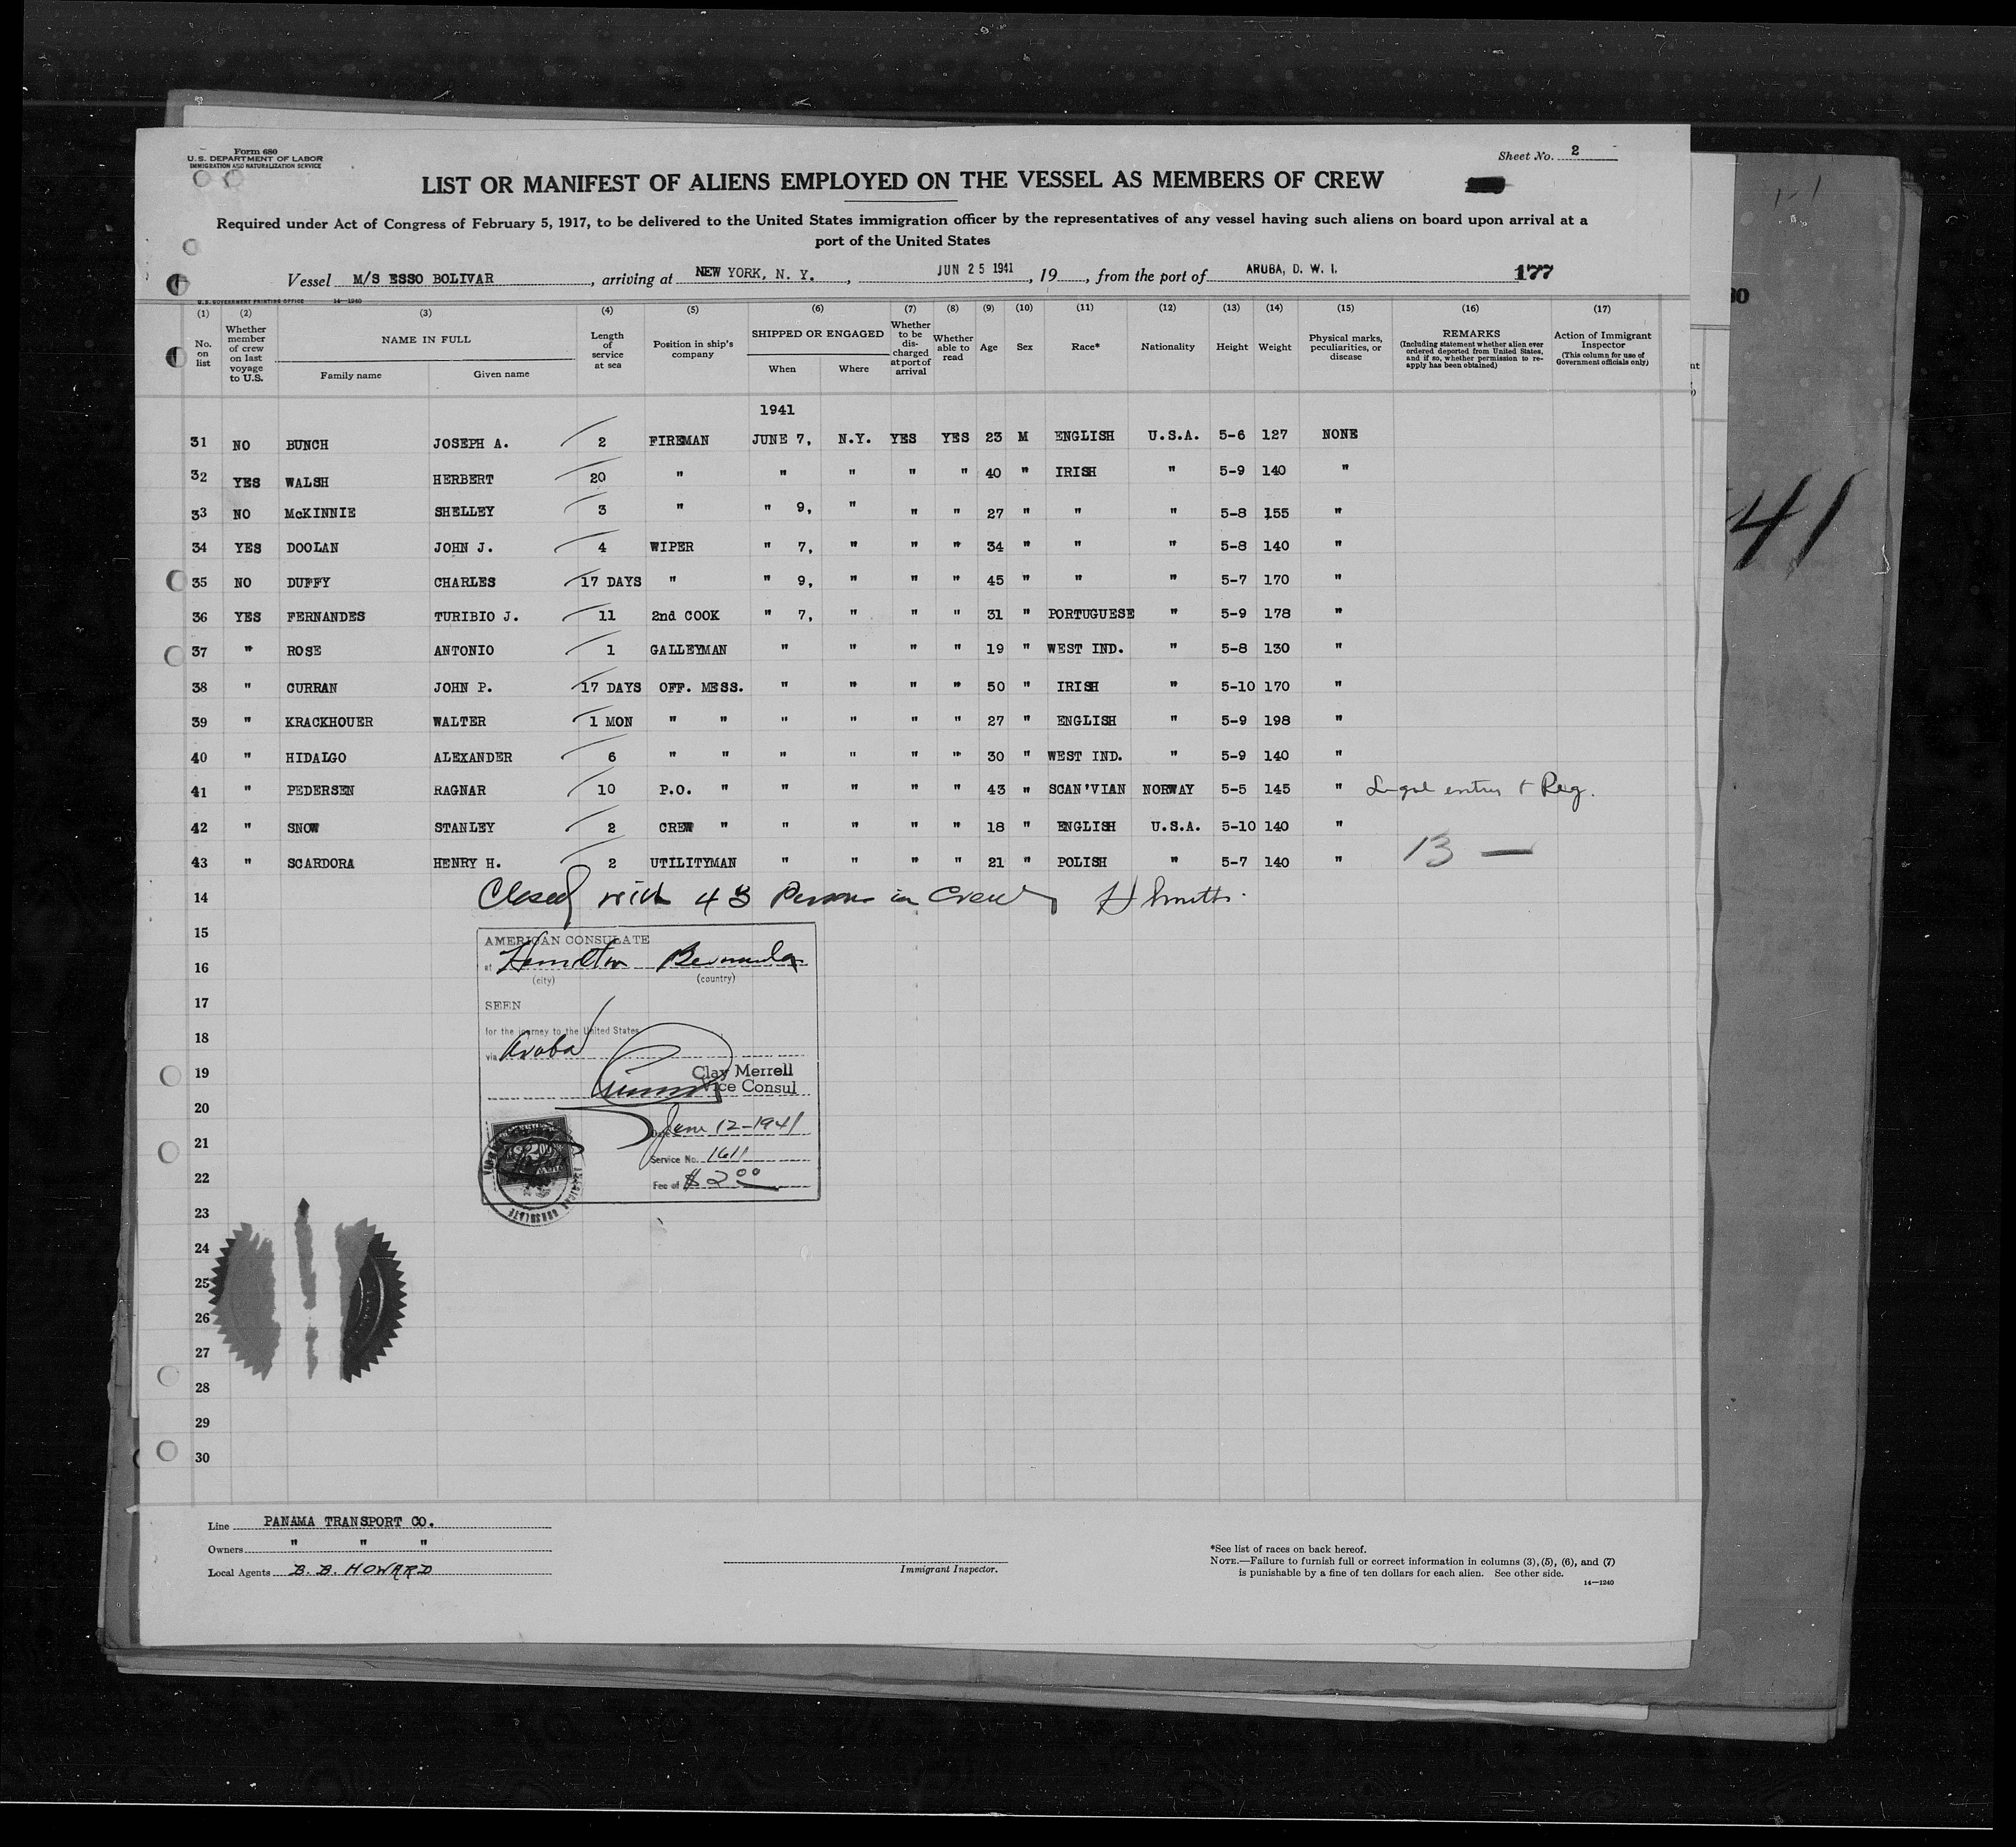 Form 680
U.S. DEPARTMENT OF LABOR
IMMIGRATION AND NATURALIZATION SERVICE
Sheet No. 2
LIST OR MANIFEST OF ALIENS EMPLOYED ON THE VESSEL AS MEMBERS OF CREW
Required under Act of Congress of February 5, 1917, to be delivered to the United States immigration officer by the representatives of any vessel having such aliens on board upon arrival at a
port of the United States
Vessel M/S ESSO BOLIVAR, arriving at NEW YORK, N. Y., JUN 25 1941, 19, from the port of ARUBA, D. W. I. 177
U.S. GOVERNMENT PRINTING OFFICE 14—1240
(1) (2) (3) (4) (5) (6) (7) (8) (9) (10) (11) (12) (13) (14) (15) (16) (17)
No. on list
Whether member of crew on last voyage to U.S.
NAME IN FULL
Family name
Given name
Length of service at sea
Position in ship's company
SHIPPED OR ENGAGED
When
Where
Whether to be discharged at port of arrival
Whether able to read
Age
Sex
Race*
Nationality
Height
Weight
Physical marks, peculiarities, or disease
REMARKS
(Including statement whether alien ever ordered deported from United States, and if so, whether permission to reapply has been obtained)
Action of Immigrant Inspector
(This column for use of Government officials only)
1941
31 NO BUNCH JOSEPH A. 2 FIREMAN JUNE 7, N.Y. YES YES 23 M ENGLISH U.S.A. 5-6 127 NONE
32 YES WALSH HERBERT 20 " " " " " 40 " IRISH " 5-9 140 "
33 NO McKINNIE SHELLEY 3 " " 9, " " " 27 " " " 5-8 155 "
34 YES DOOLAN JOHN J. 4 WIPER " 7, " " " 34 " " " 5-8 140 "
35 NO DUFFY CHARLES 17 DAYS " " 9, " " " 45 " " " 5-7 170 "
36 YES FERNANDES TURIBIO J. 11 2nd COOK " 7, " " " 31 " PORTUGUESE " 5-9 178 "
37 " ROSE ANTONIO 1 GALLEYMAN " " " " 19 " WEST IND. " 5-8 130 "
38 " CURRAN JOHN P. 17 DAYS OFF. MESS. " " " " 50 " IRISH " 5-10 170 "
39 " KRACKHOUER WALTER 1 MON " " " " " " 27 " ENGLISH " 5-9 198 "
40 " HIDALGO ALEXANDER 6 " " " " " " 30 " WEST IND. " 5-9 140 "
41 " PEDERSEN RAGNAR 10 P.O. " " " " " 43 " SCAN'VIAN NORWAY 5-5 145 " Legal entry & Reg.
42 " SNOW STANLEY 2 CREW " " " " " 18 " ENGLISH U.S.A. 5-10 140 "
43 " SCARDORA HENRY H. 2 UTILITYMAN " " " " 21 " POLISH " 5-7 140 " 13 —
14 Closed with 43 Persons in Crew H Smith
15
16
17
18
19
20
21
22
23
24
25
26
27
28
29
30
AMERICAN CONSULATE
at Hamilton Bermuda
(city) (country)
SEEN
for the journey to the United States
via Aruba
Clay Merrell
Vice Consul
Date June 12-1941
Service No. 1611
Fee of $2.00
Line PANAMA TRANSPORT CO.
Owners " " "
Local Agents B. B. HOWARD
Immigrant Inspector.
*See list of races on back hereof.
NOTE.—Failure to furnish full or correct information in columns (3), (5), (6), and (7)
is punishable by a fine of ten dollars for each alien. See other side.
14—1240
41